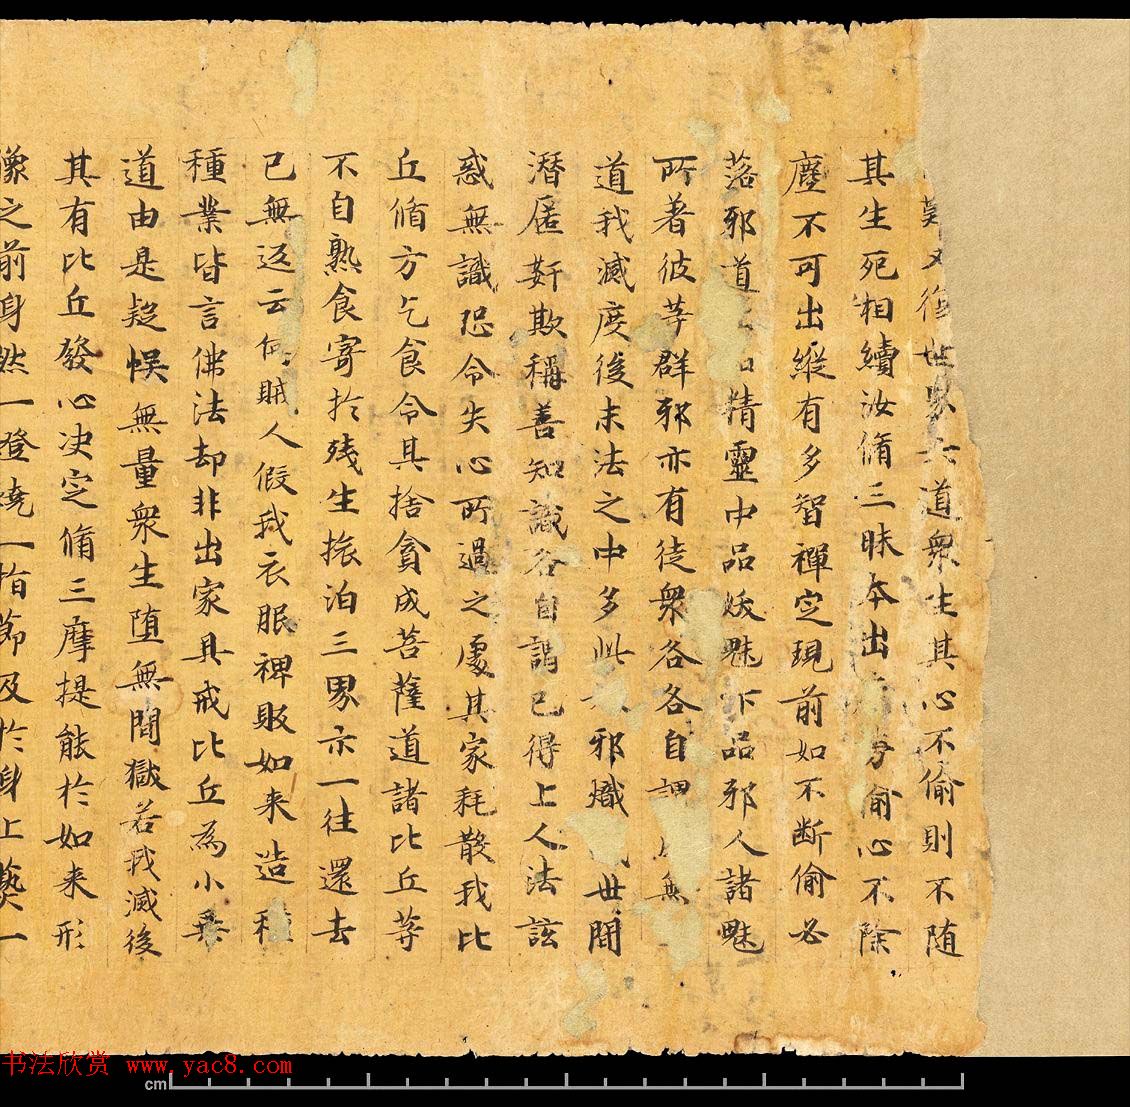 難又復世界六道衆生其心不偷則不随
其生死相續汝脩三昧本出塵勞偷心不除
塵不可出縱有多智禪定現前如不断偷必
落邪道上品精靈中品妖魅下品邪人諸魅
所著彼等群邪亦有徒衆各各自謂無
道我滅度後末法之中多此邪熾世間
潛匿姧欺稱善知識各自謂已得上人法詃
惑無識恐令失心所過之處其家耗散我比
丘脩方乞食令其捨貪成菩薩道諸比丘等
不自熟食寄於残生旅泊三界示一往還去
已無返云何賊人假我衣服裨販如来造種
種業皆言佛法却非出家具戒比丘為小乗
道由是疑悞無量衆生堕無間獄若我滅後
其有比丘發心决定脩三摩提能於如来形
像之前身然一燈燒一指節及於身上爇一
书法欣赏 www.yac8.com
cm